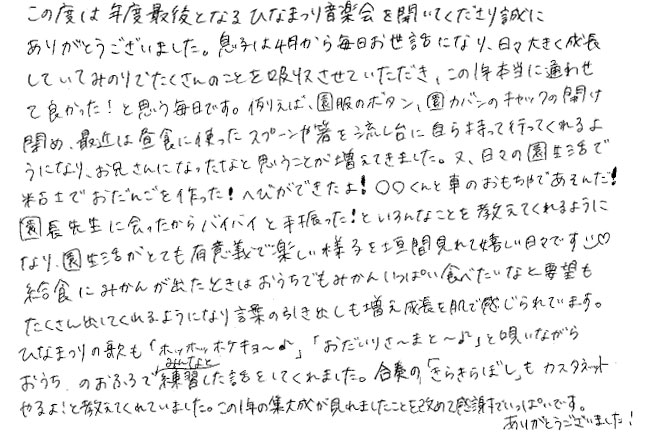 この度は年度最後となるひなまつり音楽会を開いてくださり誠に
ありがとうございました。息子は4月から毎日お世話になり、日々大きく成長
していてみのりでたくさんのことを吸収させていただき、この1年本当に通わせ
て良かった！と思う毎日です。例えば、園服のボタン、園カバンのチャックの開け
閉め、最近は昼食に使ったスプーンや箸を流し台に自ら持って行ってくれるよ
うになり、お兄さんになったなと思うことが増えてきました。又、日々の園生活で
粘土でおだんごを作った！へびができたよ！〇〇くんと車のおもちゃであそんだ！
園長先生に会ったからバイバイと手振った！といろんなことを教えてくれるように
なり、園生活がとても有意義で楽しい様子を垣間見れて嬉しい日々です♡
給食にみかんが出たときはおうちでもみかんいっぱい食べたいなと要望も
たくさん出してくれるようになり言葉の引き出しも増え成長を肌で感じられています。
ひなまつりの歌も「ホッホッホケキョ〜♪」「おだいりさ〜まと〜♪」と唄いながら
みんなと
おうちのおふろで練習した話をしてくれました。合奏の「きらきらぼし」もカスタネット
やるよ！と教えてくれていました。この1年の集大成が見れましたことを改めて感謝でいっぱいです。
ありがとうございました！